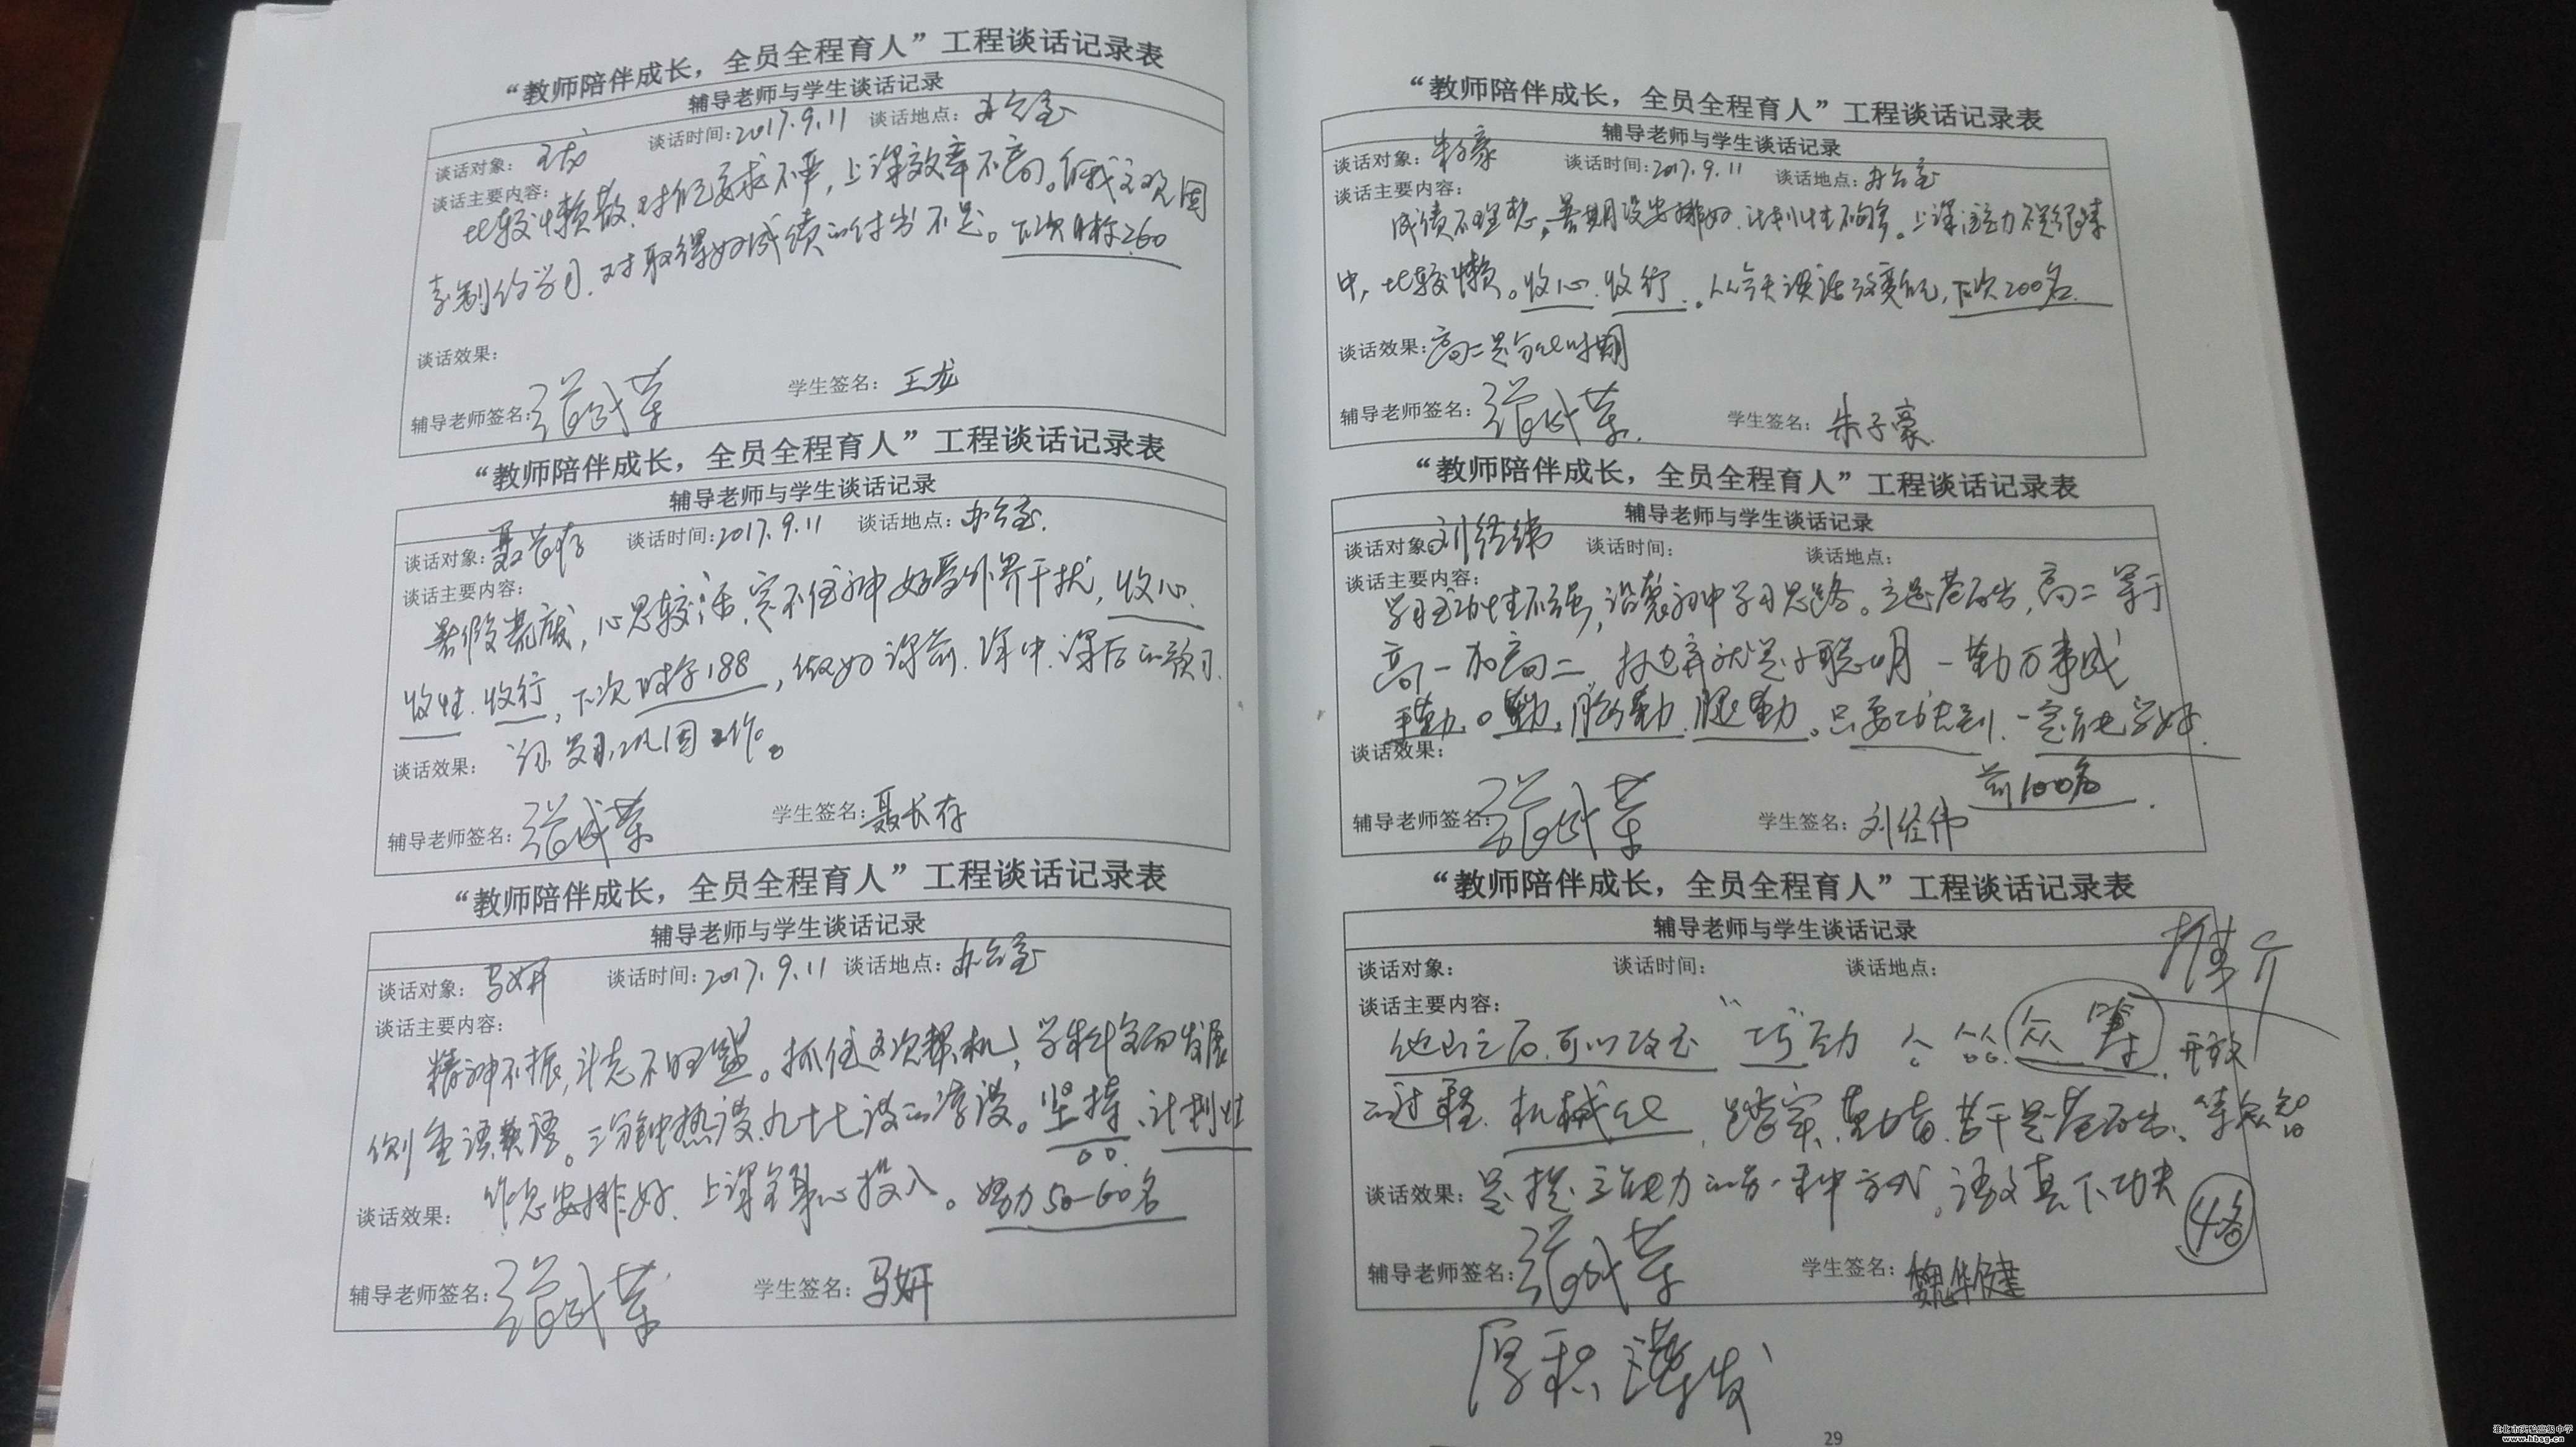 “教师陪伴成长，全员全程育人”工程谈话记录表
辅导老师与学生谈话记录
谈话对象： 王龙 谈话时间：2017.9.11 谈话地点：办公室
谈话主要内容：
比较懒散，对自己要求不严，上课效率不高。自我主观因
素制约学习，对取得好成绩的付出不足。下次目标260
谈话效果：
辅导老师签名： 学生签名：王龙
“教师陪伴成长，全员全程育人”工程谈话记录表
辅导老师与学生谈话记录
谈话对象：聂长存 谈话时间：2017.9.11 谈话地点：办公室.
谈话主要内容：
暑假荒废，心思较活，定不住神好受外界干扰，收心.
收性.收行，下次目标188，做好课前.课中.课后的预习.
谈话效果： 复习，巩固工作。
辅导老师签名： 学生签名：聂长存
“教师陪伴成长，全员全程育人”工程谈话记录表
辅导老师与学生谈话记录
谈话对象：马妍 谈话时间：2017.9.11 谈话地点：办公室
谈话主要内容：
精神不振，斗志不旺盛。抓住这次契机，学科全面发展
侧重语英语。三分钟热度，坚持、计划性
谈话效果： 作息安排好、上课全身心投入。努力50-60名
辅导老师签名： 学生签名：马妍
“教师陪伴成长，全员全程育人”工程谈话记录表
辅导老师与学生谈话记录
谈话对象：朱子豪 谈话时间：2017.9.11 谈话地点：办公室
谈话主要内容：
成绩不理想，暑期没安排好，计划性不够。上课注意力不是很集
中，比较懒。收心.收行.。从今天谈话改变自己，下次200名.
谈话效果：高二是分化时期
辅导老师签名： 学生签名：朱子豪
“教师陪伴成长，全员全程育人”工程谈话记录表
辅导老师与学生谈话记录
谈话对象：刘经纬 谈话时间： 谈话地点：
谈话主要内容：
学习主动性不强，沿袭初中学习思路。高二等于
高一加高二，小聪明 一勤万事成
手勤.口勤.脑勤.腿勤。只要功夫到，一定能学好.
谈话效果：
前100名
辅导老师签名： 学生签名：刘经伟
“教师陪伴成长，全员全程育人”工程谈话记录表
辅导老师与学生谈话记录
谈话对象： 谈话时间： 谈话地点：
推介
谈话主要内容：
他山之石，可以攻玉 “巧”劲 众筹 开放
的过程. 机械化
谈话效果： 是提高能力的另一种方式。语文真下功夫
4名
辅导老师签名： 学生签名：魏华健
厚积薄发
29
淮北市实验高级中学
www.hbsg.cn